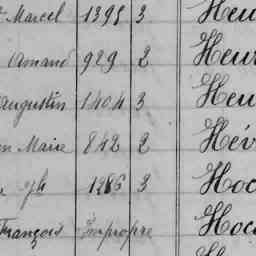 Marcel 1395 3 Heu
Amand 929 2 Heur
Augustin 1404 3 Heu
en Marie 842 2 Hév
Jh 1286 3 Hoc
François Impropre Hoc